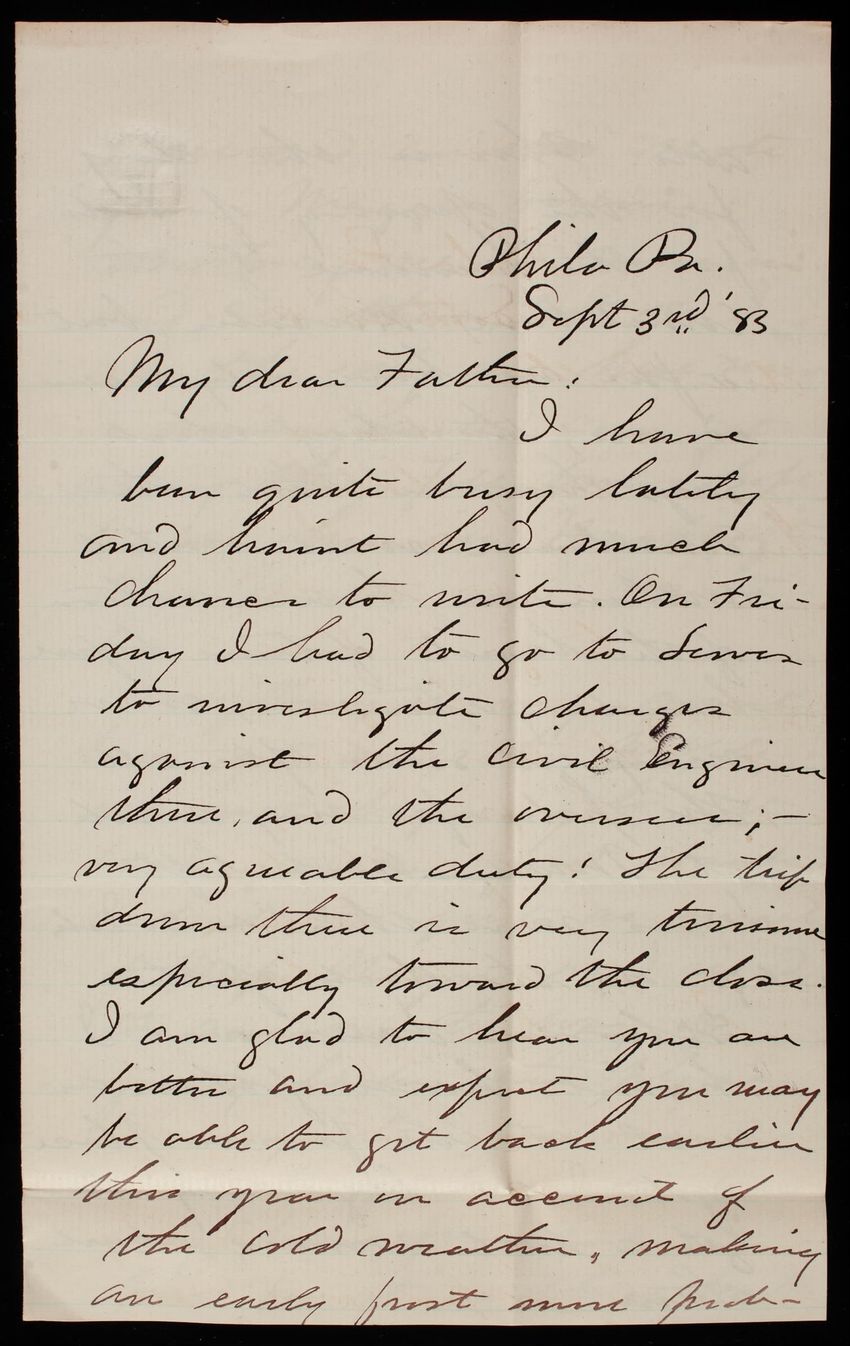 Phila Pa.
Sept 3rd '83
My dear Father:
I have
been quite busy lately
and haint had much
chance to write. On Fri-
day I had to go to Lewes
to investigate charges
against the Civil Engineer
there, and the overseer;—
very agreeable duty! The trip
down there is very tiresome
especially toward the close.
I am glad to hear you are
better and expect you may
be able to get back earlier
this year on account of
the cold weather, making
an early frost more prob-